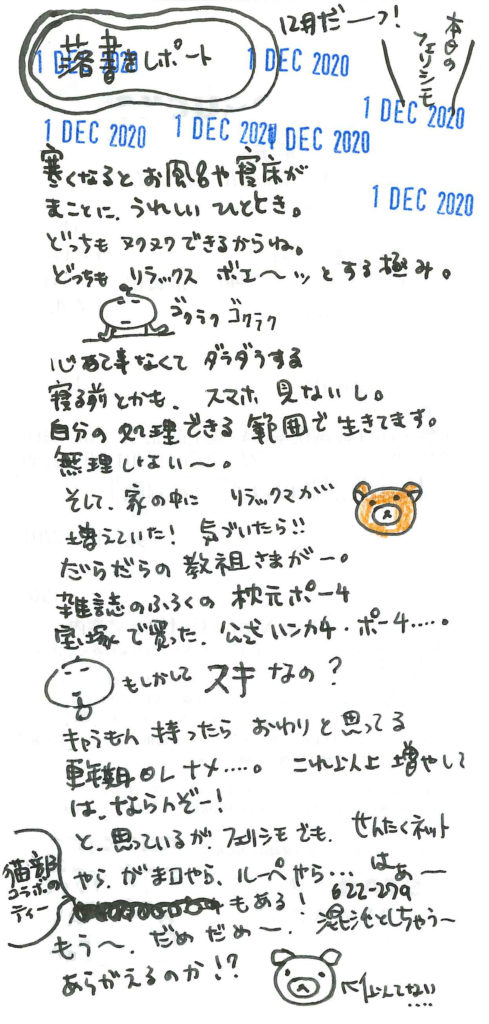 落書きレポート
12月だーっ!
本日の
フェリシモ
1 DEC 2020
1 DEC 2020
1 DEC 2020
1 DEC 2020
1 DEC 2020
1 DEC 2020
1 DEC 2020
寒くなると お風呂や寝床が
まことに、うれしい ひととき。
どっちも ヌクヌクできるからね。
どっちも リラックス ボエ〜ッとする極み。
ゴクラク ゴクラク
心あて事なくて ダラダラする
寝る前とかも、スマホ 見ないし。
自分の 処理できる 範囲で生きてます。
無理しない〜。
そして、家の中に リラックマが…
増えていた! 気づいたら!!
だらだらの 教祖さまがー。
雑誌のふろくの 枕元ポーチ
宝塚で買った、公式ハンカチ・ポーチ....。
もしかして スキ なの?
キャラもん 持ったら おわりと思ってる
更年期OL ナメ....。 これ以上 増やして
は、ならんぞー!
と、思っているが、フェリシモでも、せんたくネット
やら、がま口やら、ルーペやら… はぁー
猫部
コラボの
ティー
もある! 622-279
もう〜、だめ だめ〜、混沌としちゃう〜
あらがえるのか!?
←似てない....